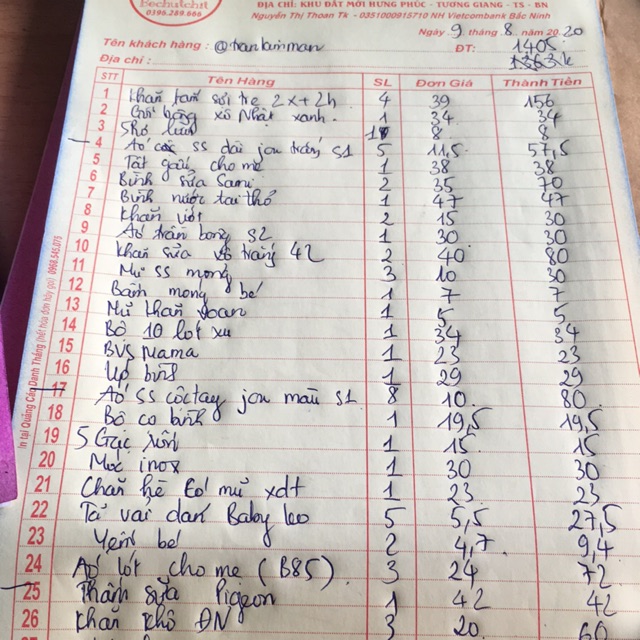 Bechutchit
0396.289.666
ĐỊA CHỈ: KHU ĐẤT MỚI HƯNG PHÚC - TƯƠNG GIANG - TS - BN
Nguyễn Thị Thoan Tk - 0351000915710 NH Vietcombank Bắc Ninh
Ngày 9 tháng 8 năm 2020
Tên khách hàng : @tranlamman ĐT: 1405
Địa chỉ :
STT Tên Hàng SL Đơn Giá Thành Tiền
1 Khăn tắm sợi tre 2x+2h 4 39 156
2 xô Nhật xanh 1 34 34
3 1 8 8
4 Áo cộc SS dài jou trắng S1 5 11,5 57,5
5 Tất gấu cho mẹ 1 38 38
6 Bình sữa Sami 2 35 70
7 Bình nước tai thỏ 1 47 47
8 Khăn ướt 2 15 30
9 Áo trần bông S2 1 30 30
10 Khăn sữa xô trắng 42 2 40 80
11 Mũ SS mỏng 3 10 30
12 bé 1 7 7
13 Mũ thân 1 5 5
14 Bô 10 lót xu 1 34 34
15 BVS Mama 1 23 23
16 Úp bình 1 29 29
17 Áo SS cộc tay jou màu S1 8 10 80
18 Bộ cọ bình 1 19,5 19,5
19 5 Gạc 1 15 15
20 Móc inox 1 30 30
21 Chăn hè có mũ xdt 1 23 23
22 Tã vải dán Baby leo 5 5,5 27,5
23 Yếm bé 2 4,7 9,4
24 Áo lót cho mẹ (B85) 3 24 72
25 sữa Pigeon 1 42 42
26 Khăn khô ĐN 3 20 60
In tại Quảng Cáo Danh Thắng (hết hóa đơn hãy gọi) 0968.545.075